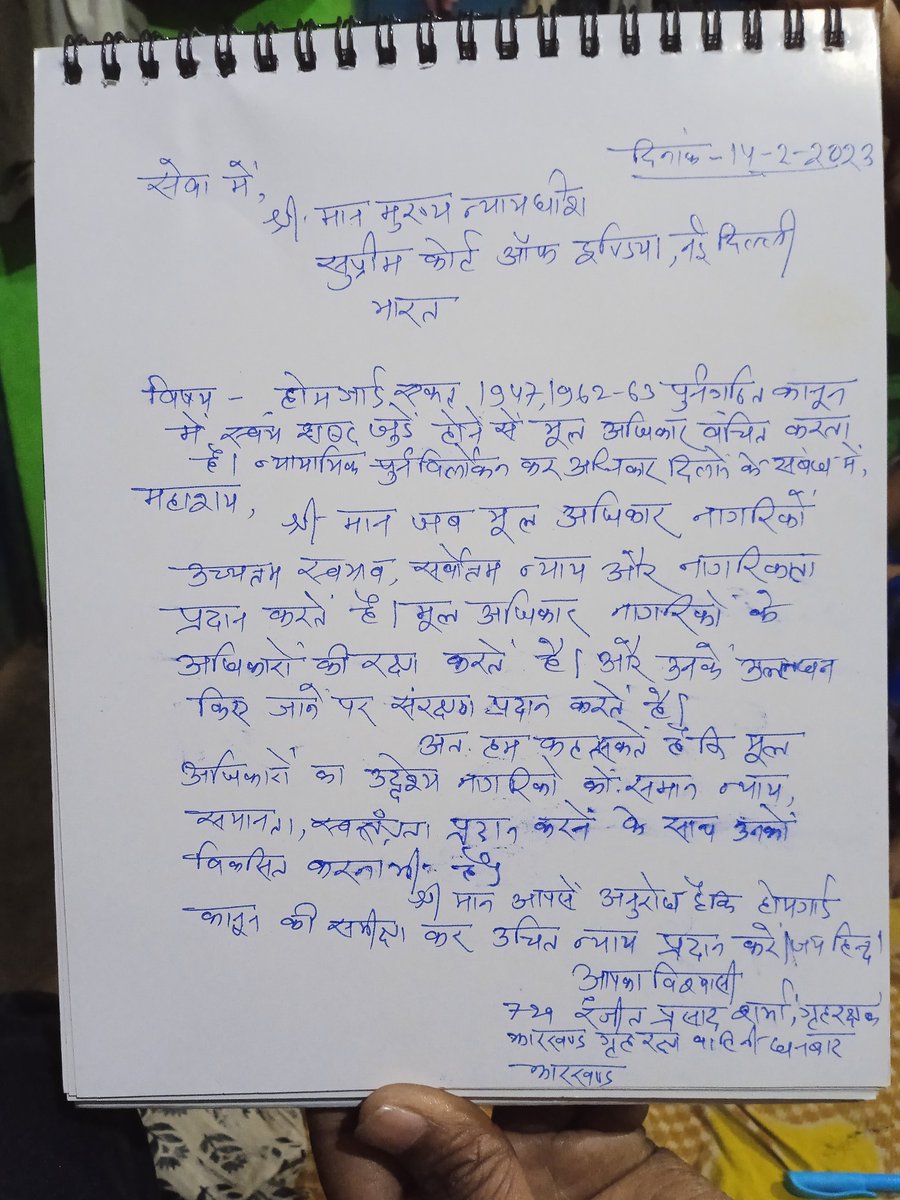 दिनांक-14-2-2023
सेवा में,
श्री मान मुख्य न्यायधीश
सुप्रीम कोर्ट ऑफ इण्डिया, नई दिल्ली
भारत
विषय - होमगार्ड एक्ट 1947,1962-63 पुर्नगठित कानून
में स्वयं शब्द जुड़े होने से मूल अधिकार वंचित करता
है। न्यायायिक पुर्नविलोकन कर अधिकार दिलाने के संबंध में,
महाशय,
श्री मान जब मूल अधिकार नागरिकों
उच्चतम स्वभाव, सर्वोत्तम न्याय और नागरिकता
प्रदान करतें हैं। मूल अधिकार नागरिकों के
अधिकारों की रक्षा करतें है। और उनके
किए जानें पर संरक्षण प्रदान करतें है।
अतः हम कह सकतें है कि मूल
अधिकारों का उद्देश्य नागरिकों कों समान न्याय,
समानता, स्वतंत्रता प्रदान करनें के साथ उनकों
विकसित करना भी है।
श्री मान आपसें अनुरोध है कि होमगार्ड
कानून की समीक्षा कर उचित न्याय प्रदान करें। जय हिन्द।
आपका विश्वासी
729 रंजीत प्रसाद शर्मा, गृहरक्षक
झारखण्ड गृह रक्षा वाहिनी धनबाद
झारखण्ड